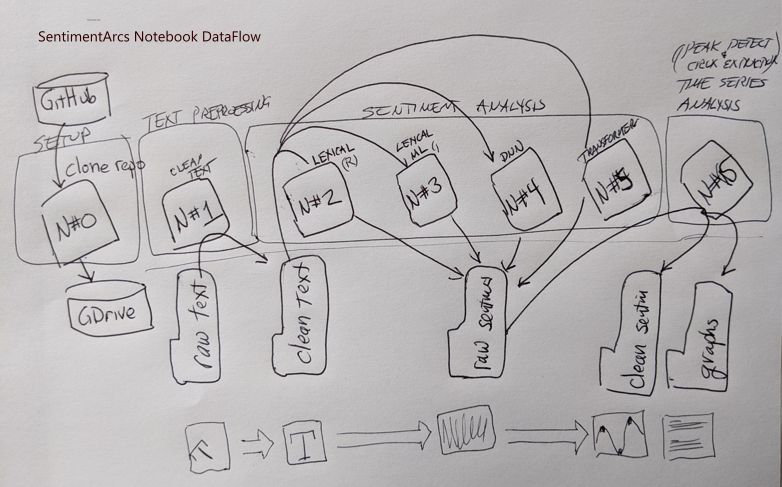 SentimentArcs Notebook DataFlow
GitHub
SETUP
Clone repo
N#0
GDrive
TEXT PREPROSSING
CLEAN
TEXT
N#1
raw text
clean text
SENTIMENT ANALYSIS
LEXICAL
(R)
N#2
LEXICAL
ML
N#3
DNN
N#4
TRANSFORMER
N#5
raw
(PEAK DETECT
& CRUX EXTRACTION)
TIME SERIES
ANALYSIS
N#6
clean sentim
graphs
T